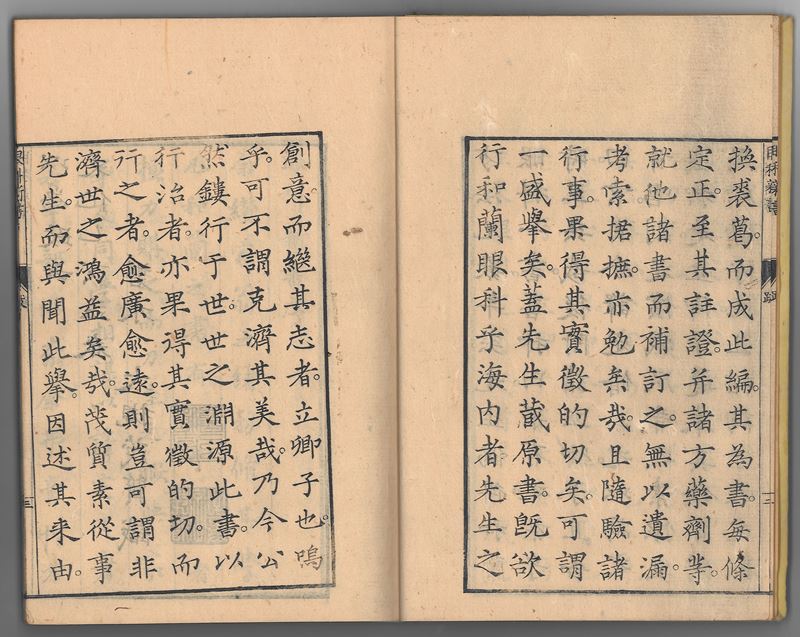 換裘葛。而成此編。其為書。每條
定正。至其註證。并諸方藥劑等。
就他諸書而補訂之。無以遺漏。
考索。据摭。亦勉矣哉。且隨驗諸
行事。果得其實徵的切矣。可謂
一盛擧矣。蓋先生蕆原書。既欲
行和蘭眼科乎海内者先生之
創意。而繼其志者。立卿子也。嗚
乎。可不謂克濟其美哉。乃今公
然鏤行于世。世之淵源此書。以
行治者。亦果得其實徵的切。而
行之者。愈廣愈遠。則豈可謂非
濟世之鴻益矣哉。茂質素從事
先生。而與聞此擧。因述其来由。
跋
三